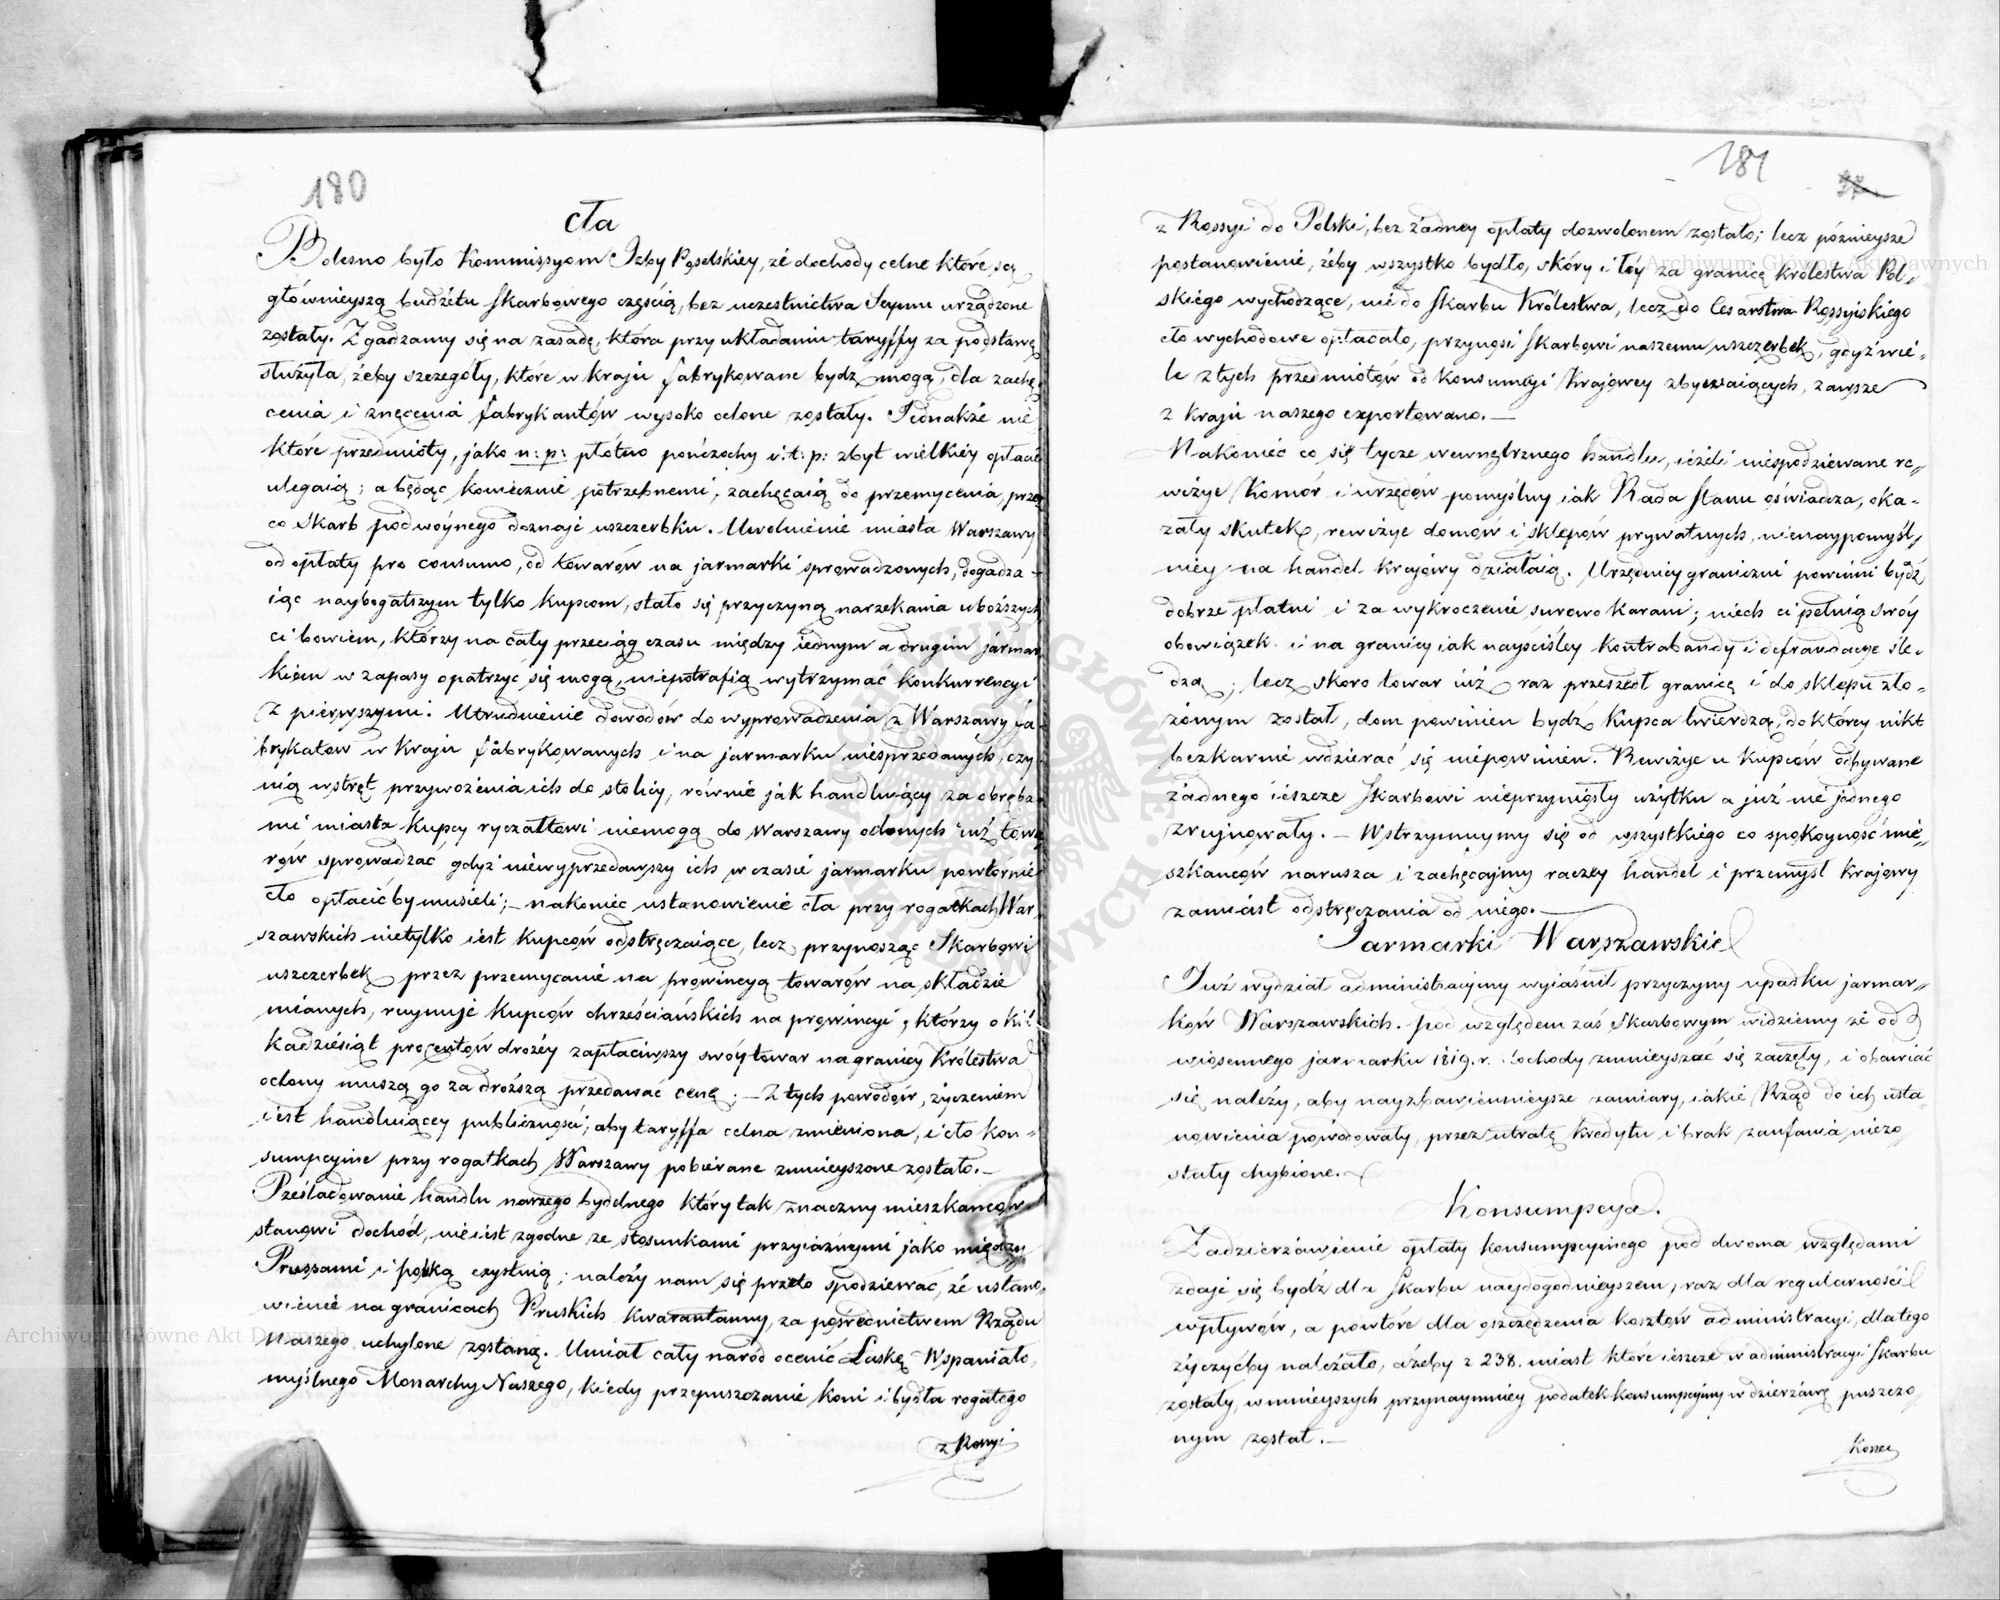 180
Cła
Bolesno było Kommissyom Izby Poselskiey, że dochody celne które są
główniejszą budżetu Skarbowego częścią, bez uczestnictwa Seymu urządzone
zostały. Zgadzamy się na zasadę, która przy układaniu taryffy za podstawę
służyła, żeby szczegóły, które w kraju fabrykowane bydz mogą, dla zachę,
cenia i znęcenia fabrykantów wysoko oclone zostały. Jednakże nie„
które przedmioty, jako n: p: płótno pończochy i: t: p: zbyt wielkiéy opłacie
ulegaią; a będąc koniecznie potrzebnemi, zachęcaią do przemycenia, przez
co Skarb podwóynego doznaje uszczerbku. Uwolnienie miasta Warszawy
od opłaty pro consumo, od towarów na jarmarki sprowadzonych, dogadza-
iąc naybogatszym tylko kupcom, stało się przyczyną narzekania uboższych
ci bowiem, którzy na cały przeciąg czasu między iednym a drugim jarmar
kiem w zapasy opatrzyć się mogą, niepotrafią wytrzymać konkurrencyi
z pierwszymi. Utrudnienie dowodów do wyprowadzenia z Warszawy fa-
brykatow w kraju fabrykowanych i na jarmarku niesprzedanych, czy-
nią wstręt przywożenia ich do stolicy, równie jak handluiący za obręba-
mi miasta kupcy ryczałtowi niemogą do Warszawy oclonych iuż towa
rów sprowadzać gdyż niewyprzedawszy ich w czasie jarmarku powtórnie
cło opłacićby musieli;– nakoniec ustanowienie cła przy rogatkach War„
szawskich nietylko iest kupców odstręczaiące, lecz przynosząc Skarbowi
uszczerbek przez przemycanie na prowincyą towarów na składzie
mianych, ruynuje kupców chrześciańskich na prowincyi, którzy o kil:
kadziésiąt procentów drożéy zapłaciwszy swóy towar na granicy Królestwa
oclony muszą go za droższą przedawać cenę; – Z tych powodów, życzeniem
iest handluiącey publiczności, aby taryffa celna zmieniona, i cło kon-
sumpcyine przy rogatkach Warszawy pobierane zmnieyszone zostało.–
Prześladowanie handlu naszego bydelnego który tak znaczny mieszkańców
stanowi dochód, nieiest zgodne ze stosunkami przyiaźnymi jako między
Prussami i polską czystnią; należy nam się przeto spodziewać, że ustano„
wienie na granicach Pruskich kwarantanny, za pośrednictwem Rządu
Naszego uchylone zostaną. Umiał cały naród ocenić Łaskę Wspaniało,
myślnego Monarchy Naszego, kiedy przepuszczanie koni i bydła rogatego
z Rossyi
181
z Rossyi do Polski, bez żadney opłaty dozwolonem zostało; lecz późnieysze
postanowienie, żeby wszystko bydło, skóry i łóy za granicę królestwa Pol„
skiego wychodzące, nie do Skarbu Królestwa, lecz do Cesarstwa Rossyiskiego
cło wychodowe opłacało, przynosi Skarbowi naszemu uszczerbek, gdyż wie-
le z tych przedmiotów od konsumcyi krajowey zbywaiących, zawsze
z kraju naszego exportowano.—
Nakoniec co się tycze wewnętrznego handlu, ieżeli niespodziewane re„
wizye Komór i urzędów pomyślny iak Rada Stanu oświadza, oka-
zały skutek, rewizye domów i sklepów prywatnych, nienaypomyśl„
niey na handel krajowy działaią. Urzędnicy graniczni powinni bydź
dobrze płatni i za wykroczenie surowo karani; niech ci pełnią swóy
obowiązek i na granicy iak nayściśley kontrabandy i defraudacye śle-
dzą; lecz skoro towar iuż raz przeszedł granicę i do sklepu zło-
żonym został, dom powinien bydź kupca twierdzą, do którey nikt
bezkarnie wdzierać się niepowinien. Rewizye u kupców odbywane
żadnego ieszcze Skarbowi nieprzyniosły użytku a już nie jednego
zruynowały. – Wstrzymuymy się od wszystkiego co spokoyność mie„
szkańców narusza i zachęcajmy raczéy handel i przemysł krajowy
zamiast odstręczania od niego.
Jarmarki Warszawskie
Już wydział administracyjny wyiaśnił przyczyny upadku jarmar„
ków Warszawskich. pod względem zaś Skarbowym widziemy że od
wiosennego jarmarku 1819. r. dochody zmnieyszać się zaczęły, i obawiać
się należy, aby nayzbawiennieysze zamiary, iakie Rząd do ich usta-
nowienia powodowały, przez utratę kredytu i brak zaufania niezo„
stały chybione.–
Konsumpcya.
Zadzierżawienie opłaty konsumpcyinego pod dwoma względami
zdaje się bydź dla Skarbu naydogodnieyszem, raz dla regularności
wpływów, a powtóre dla oszczędzenia kosztów administracyi, dlatego
życzyćby należało, ażeby z 238. miast które ieszcze w administracyi Skarbu
zostały, w mnieyszych przynaymniey podatek konsumpcyjny w dzierżawę puszczo„
nym został.—